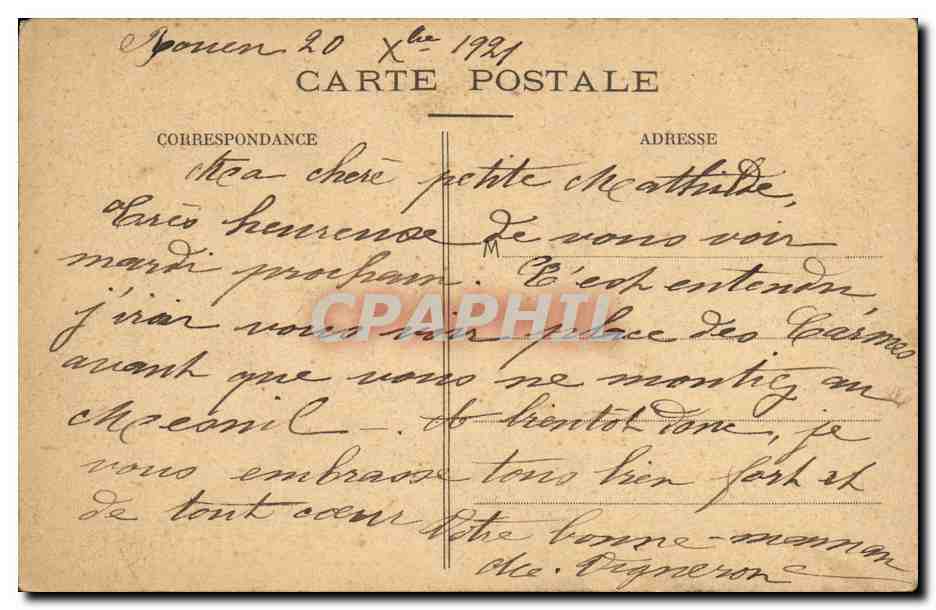 Rouen 20 Xbre 1921
CARTE POSTALE
CORRESPONDANCE
ADRESSE
Ma chère petite Mathilde,
Très heureuse de vous voir
M
mardi prochain. C'est entendu
j'irai vous voir place des Carmes
CPAPHIL
avant que vous ne montiez au
Mesnil -. A bientôt donc, je
vous embrasse tous bien fort et
de tout cœur Votre bonne-maman
Vigneron